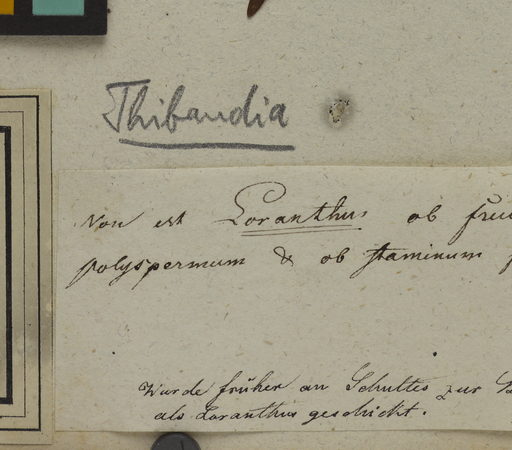 Thibaudia
Non est Loranthus ob
polyspermum & ob staminum
Wurde früher an Schultes zur
als Loranthus geschickt.